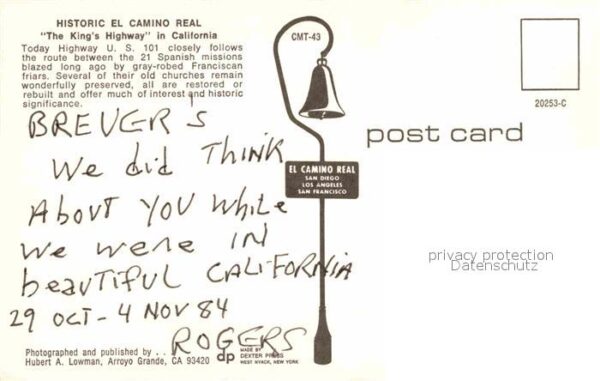 HISTORIC EL CAMINO REAL
"The King's Highway" in California
Today Highway U. S. 101 closely follows
the route between the 21 Spanish missions
blazed long ago by gray-robed Franciscan
friars. Several of their old churches remain
wonderfully preserved, all are restored or
rebuilt and offer much of interest and historic
significance.
BREUER'S
We did THINK
About YOU While
We were IN
beautiful CALIFORNIA
29 OCT - 4 NOV 84
ROGERS
Photographed and published by . . .
Hubert A. Lowman, Arroyo Grande, CA 93420
dp
MADE BY
DEXTER PRESS
WEST NYACK, NEW YORK
CMT-43
EL CAMINO REAL
SAN DIEGO
LOS ANGELES
SAN FRANCISCO
post card
20253-C
privacy protection
Datenschutz